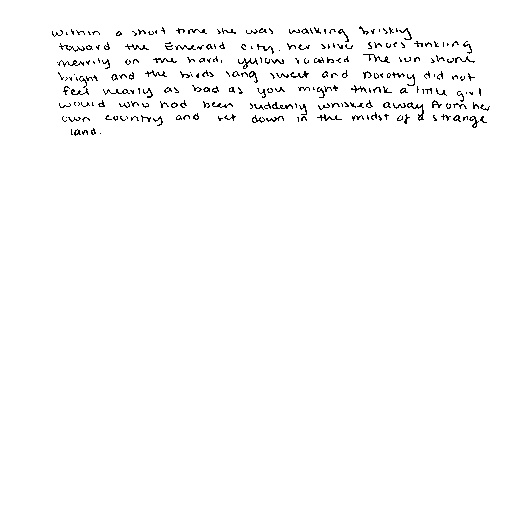 within a short time she was walking briskly
toward the Emerald City, her silver shoes tinkling
merrily on the hard, yellow roadbed. The sun shone
bright and the birds sang sweet and Dorothy did not
feel nearly as bad as you might think a little girl
would who had been suddenly whisked away from her
own country and set down in the midst of a strange
land.